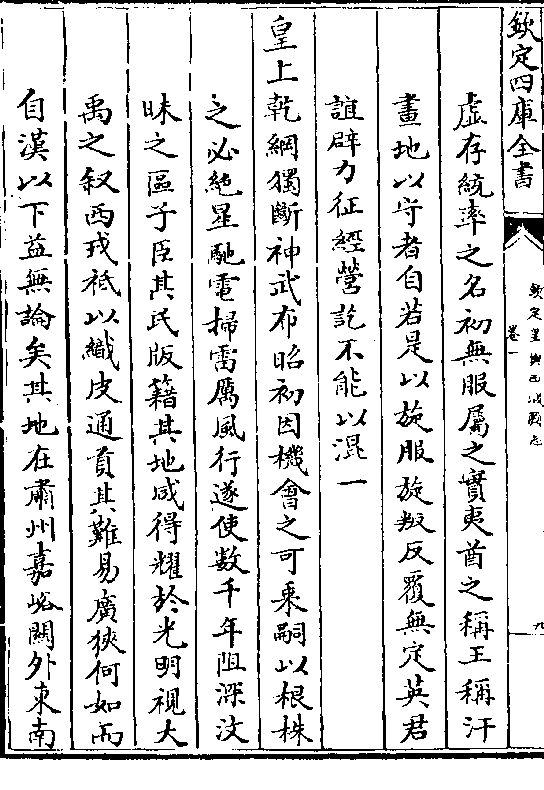 欽定四庫全書
欽定皇輿西域圖志
卷一
九
虛存統率之名初無服屬之實夷酋之稱王稱汗
畫地以守者自若是以旋服旋叛反覆無定英君
誼辟力征經營訖不能以混一
皇上乾綱獨斷神武布昭初因機會之可乗嗣以根株
之必絶星馳電掃雷厲風行遂使數千年阻深汶
昧之區子臣其民版籍其地咸得耀於光明視大
禹之叙西戎祗以織皮通貢其難易廣狹何如而
自漢以下益無論矣其地在肅州嘉峪關外東南